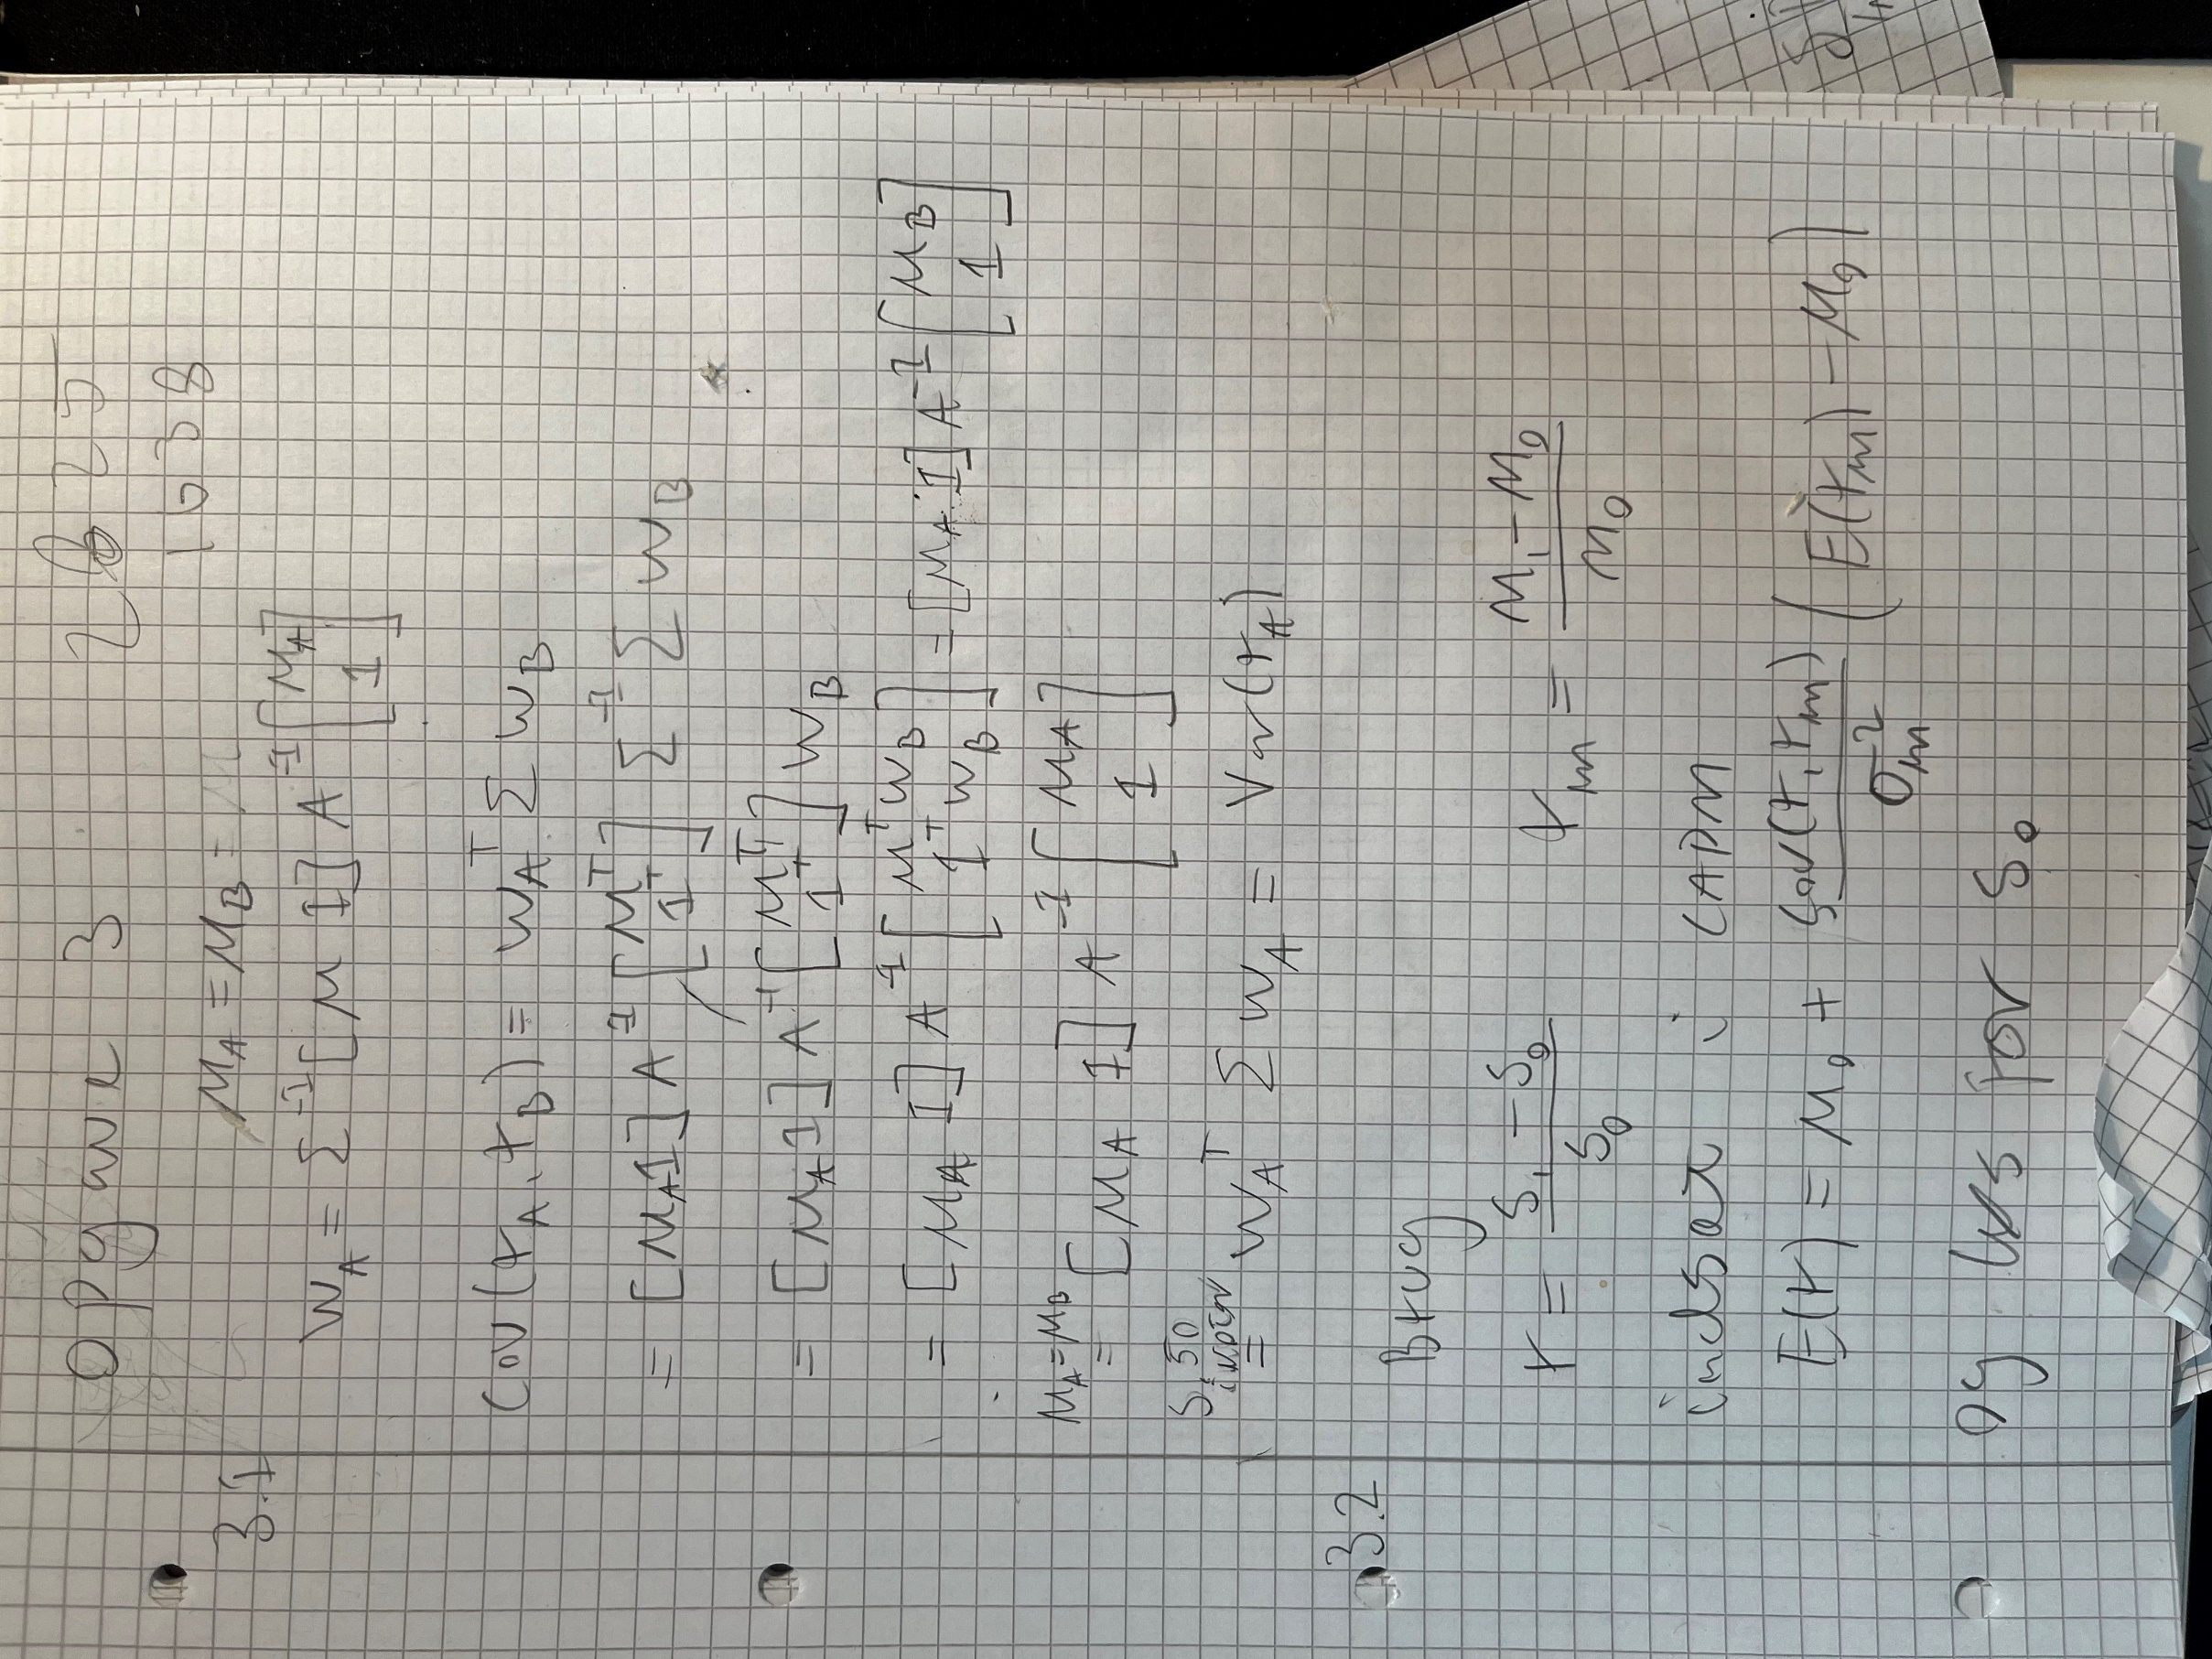 Opgave 3 2625
1038
3.1 M_A = M_B =
W_A = Σ^{-1} [M 1] A^{-1} [M_A 1]
Cov(r_A, r_B) = W_A^T Σ W_B
= [M_A 1] A^{-1} [M^T 1^T] Σ^{-1} Σ W_B
= [M_A 1] A^{-1} [M^T 1^T] W_B
= [M_A 1] A^{-1} [M^T W_B 1^T W_B] = [M_A 1] A^{-1} [M_B 1]
M_A = M_B
= [M_A 1] A^{-1} [M_A 1]
S. 50
= W_A^T Σ W_A = Var(r_A)
3.2 Brug
r = (S_1 - S_0)/S_0 r_m = (M_1 - M_0)/M_0
indsæt i CAPM
E(r) = M_0 + Cov(r, r_m)/σ_m^2 (E(r_m) - M_0)
og løs for S_0